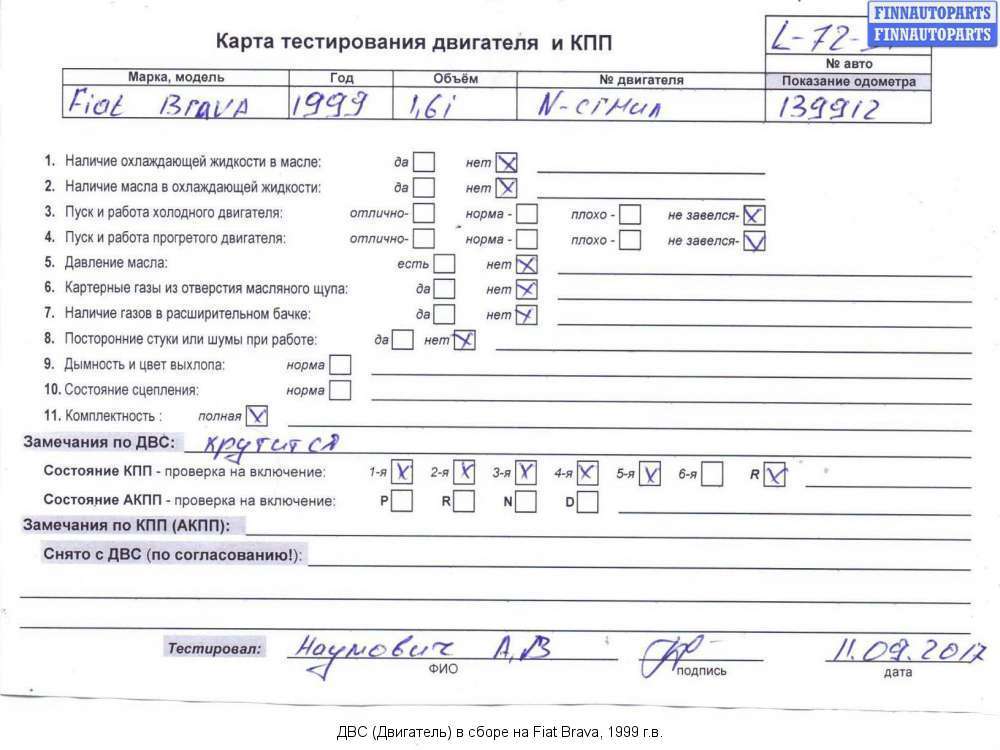 FINNAUTOPARTS
FINNAUTOPARTS
L-72-
Карта тестирования двигателя и КПП
№ авто
Марка, модель Год Объём № двигателя Показание одометра
Fiat Brava 1999 1,6i N-сгнил 139912
1. Наличие охлаждающей жидкости в масле: да нет
2. Наличие масла в охлаждающей жидкости: да нет
3. Пуск и работа холодного двигателя: отлично- норма - плохо - не завелся-
4. Пуск и работа прогретого двигателя: отлично- норма - плохо - не завелся-
5. Давление масла: есть нет
6. Картерные газы из отверстия масляного щупа: да нет
7. Наличие газов в расширительном бачке: да нет
8. Посторонние стуки или шумы при работе: да нет
9. Дымность и цвет выхлопа: норма
10. Состояние сцепления: норма
11. Комплектность : полная
Замечания по ДВС: крутится
Состояние КПП - проверка на включение: 1-я 2-я 3-я 4-я 5-я 6-я R
Состояние АКПП - проверка на включение: P R N D
Замечания по КПП (АКПП):
Снято с ДВС (по согласованию!):
Тестировал: Наумович А,В 11.09.2017
ФИО подпись дата
ДВС (Двигатель) в сборе на Fiat Brava, 1999 г.в.